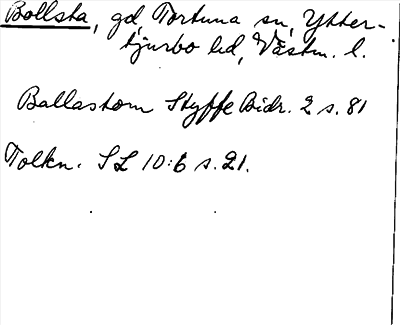 Bollsta, gd, Tortuna sn, Ytter-
tjurbo hd, Västm. l.
Ballastom Styffe Bidr. 2 s. 81
Tolkn. SL 10:6 s. 21.